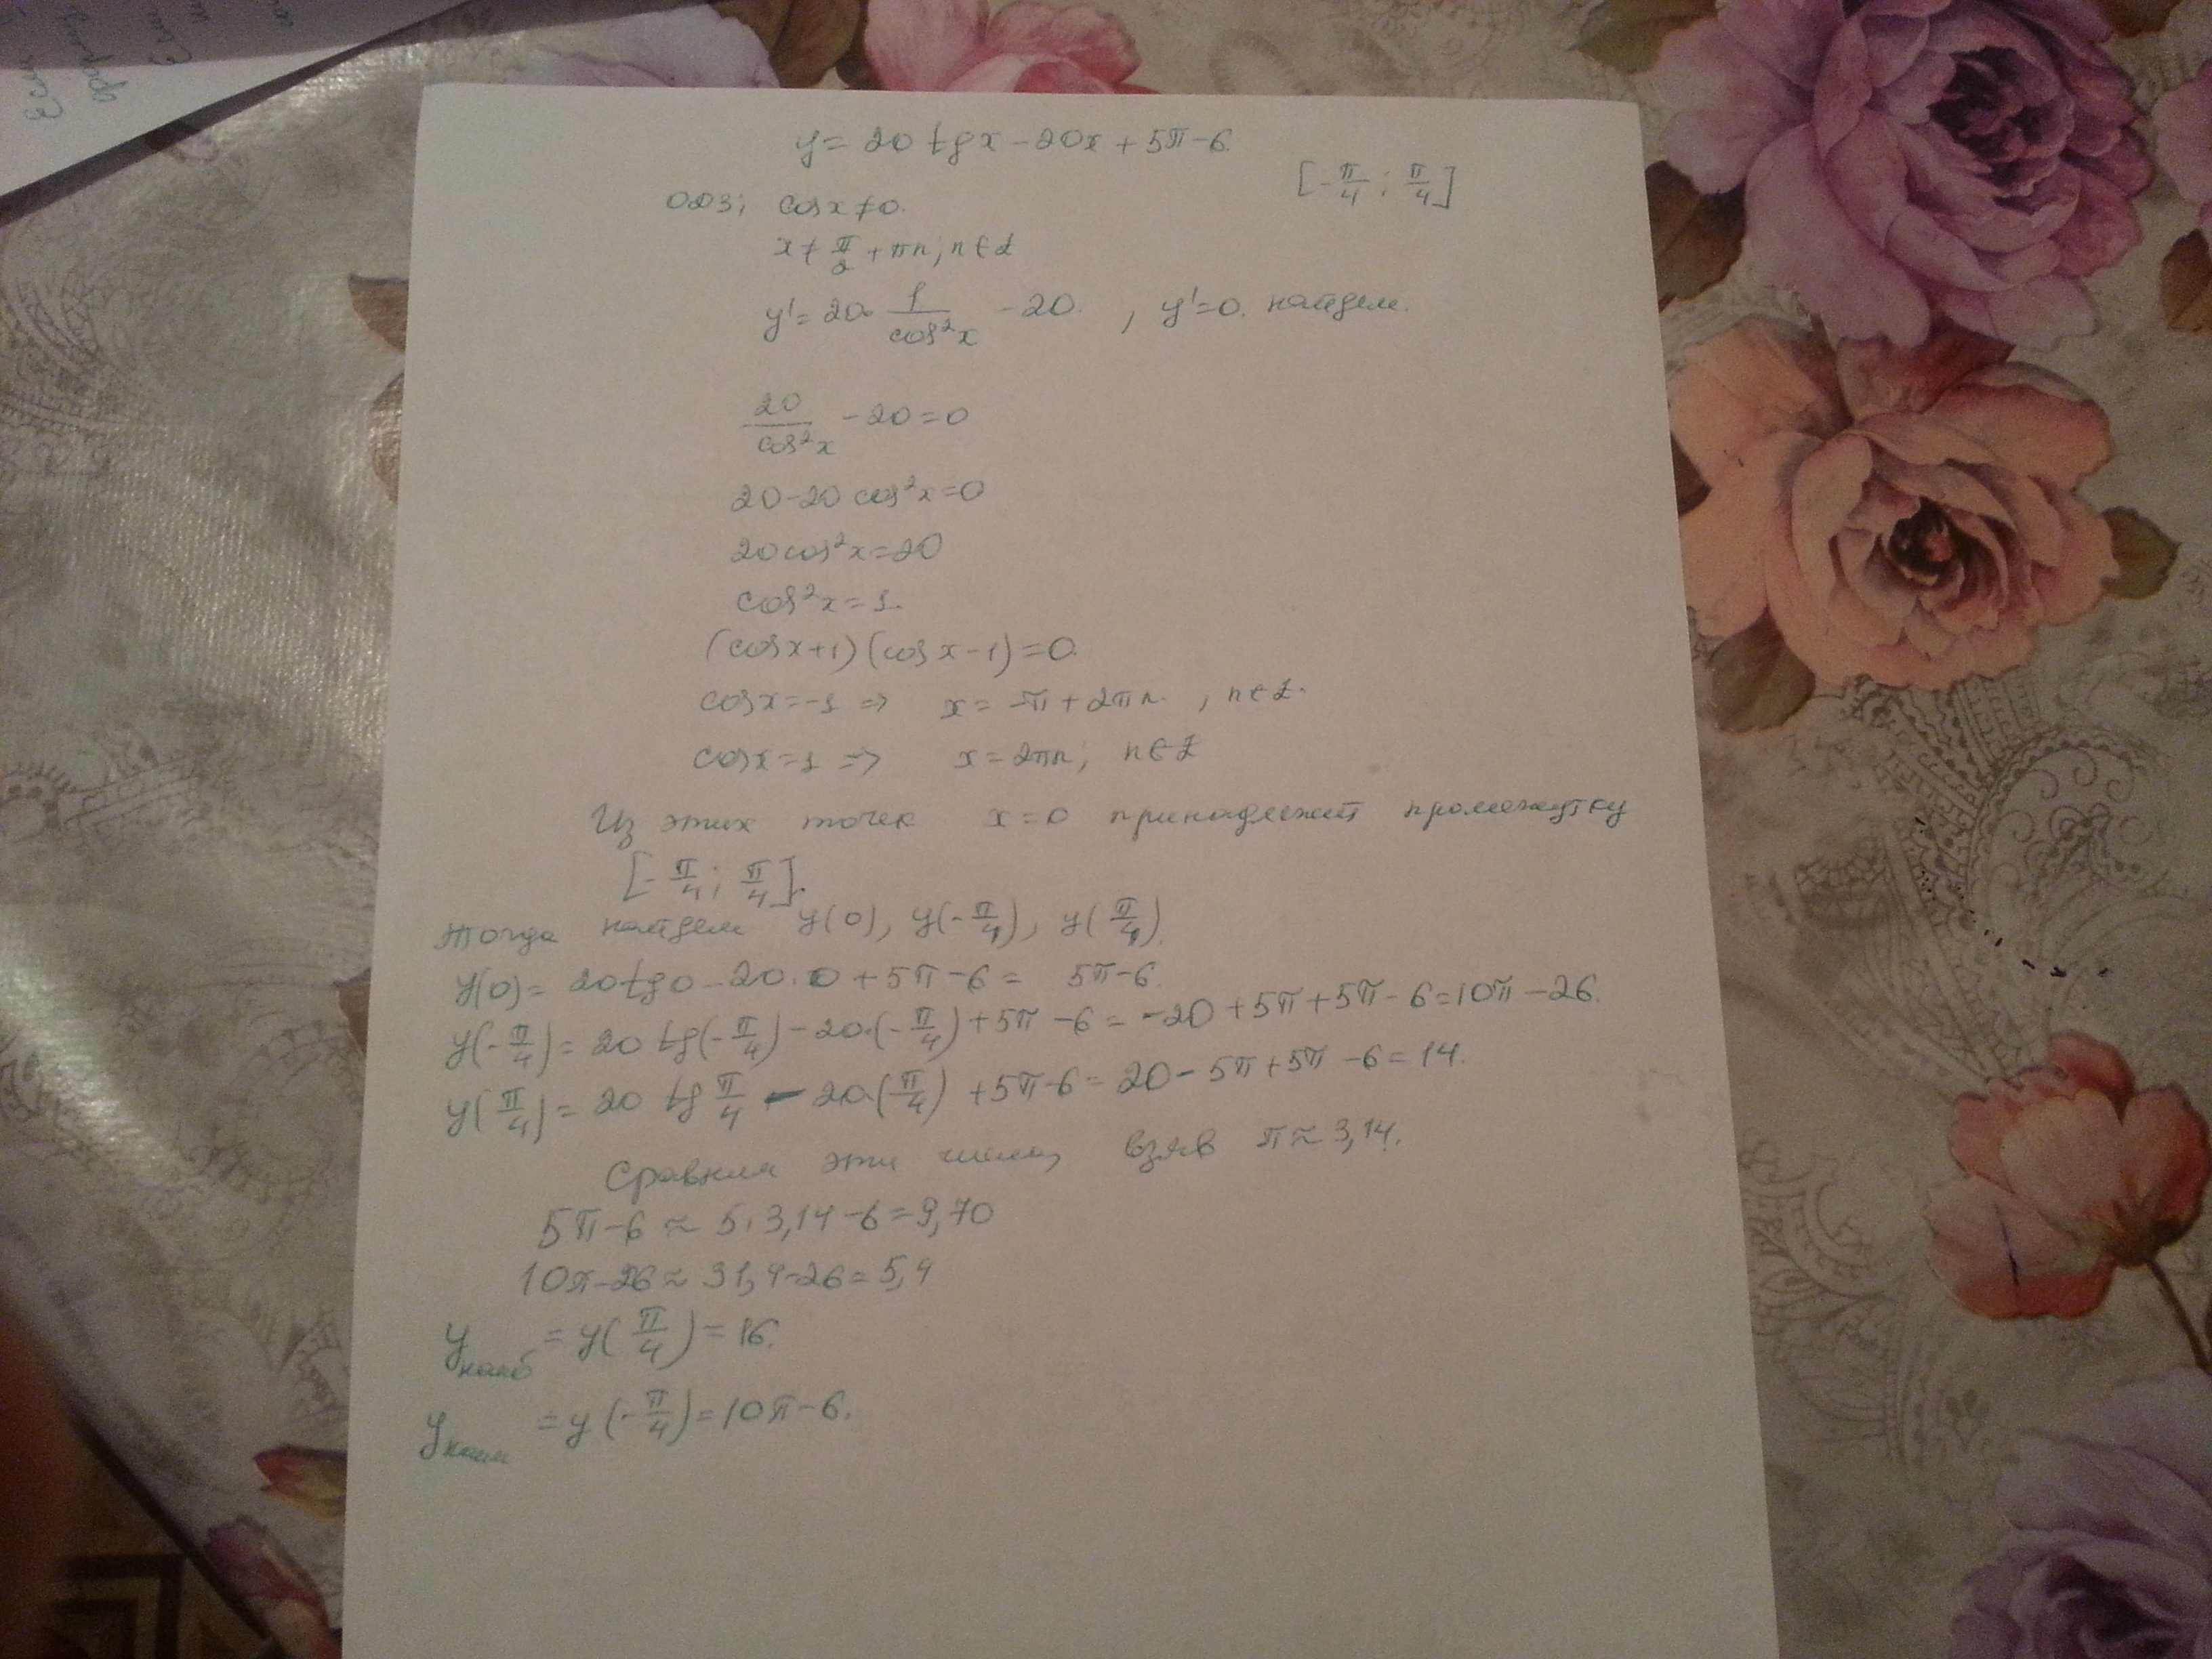 Если
y = 20 tg x − 20x + 5π − 6.
[-π/4; π/4]
ОДЗ; cos x ≠ 0.
x ≠ π/2 + πn; n ∈ Z
y' = 20 · 1/cos²x − 20. , y' = 0. найдем.
20/cos²x − 20 = 0
20 − 20 cos²x = 0
20 cos²x = 20
cos²x = 1.
(cos x + 1)(cos x − 1) = 0.
cos x = −1 ⇒ x = −π + 2πn. , n ∈ Z.
cos x = 1 ⇒ x = 2πn; n ∈ Z
Из этих точек x = 0 принадлежит промежутку
[-π/4; π/4].
Тогда найдем y(0), y(-π/4), y(π/4).
y(0) = 20 tg 0 − 20 · 0 + 5π − 6 = 5π − 6.
y(-π/4) = 20 tg(-π/4) − 20·(-π/4) + 5π − 6 = −20 + 5π + 5π − 6 = 10π − 26.
y(π/4) = 20 tg π/4 − 20·(π/4) + 5π − 6 = 20 − 5π + 5π − 6 = 14.
Сравним эти числа, взяв π ≈ 3,14.
5π − 6 ≈ 5 · 3,14 − 6 = 9,70
10π − 26 ≈ 31,4 − 26 = 5,4
y наиб = y(π/4) = 16.
y наим = y(-π/4) = 10π − 6.